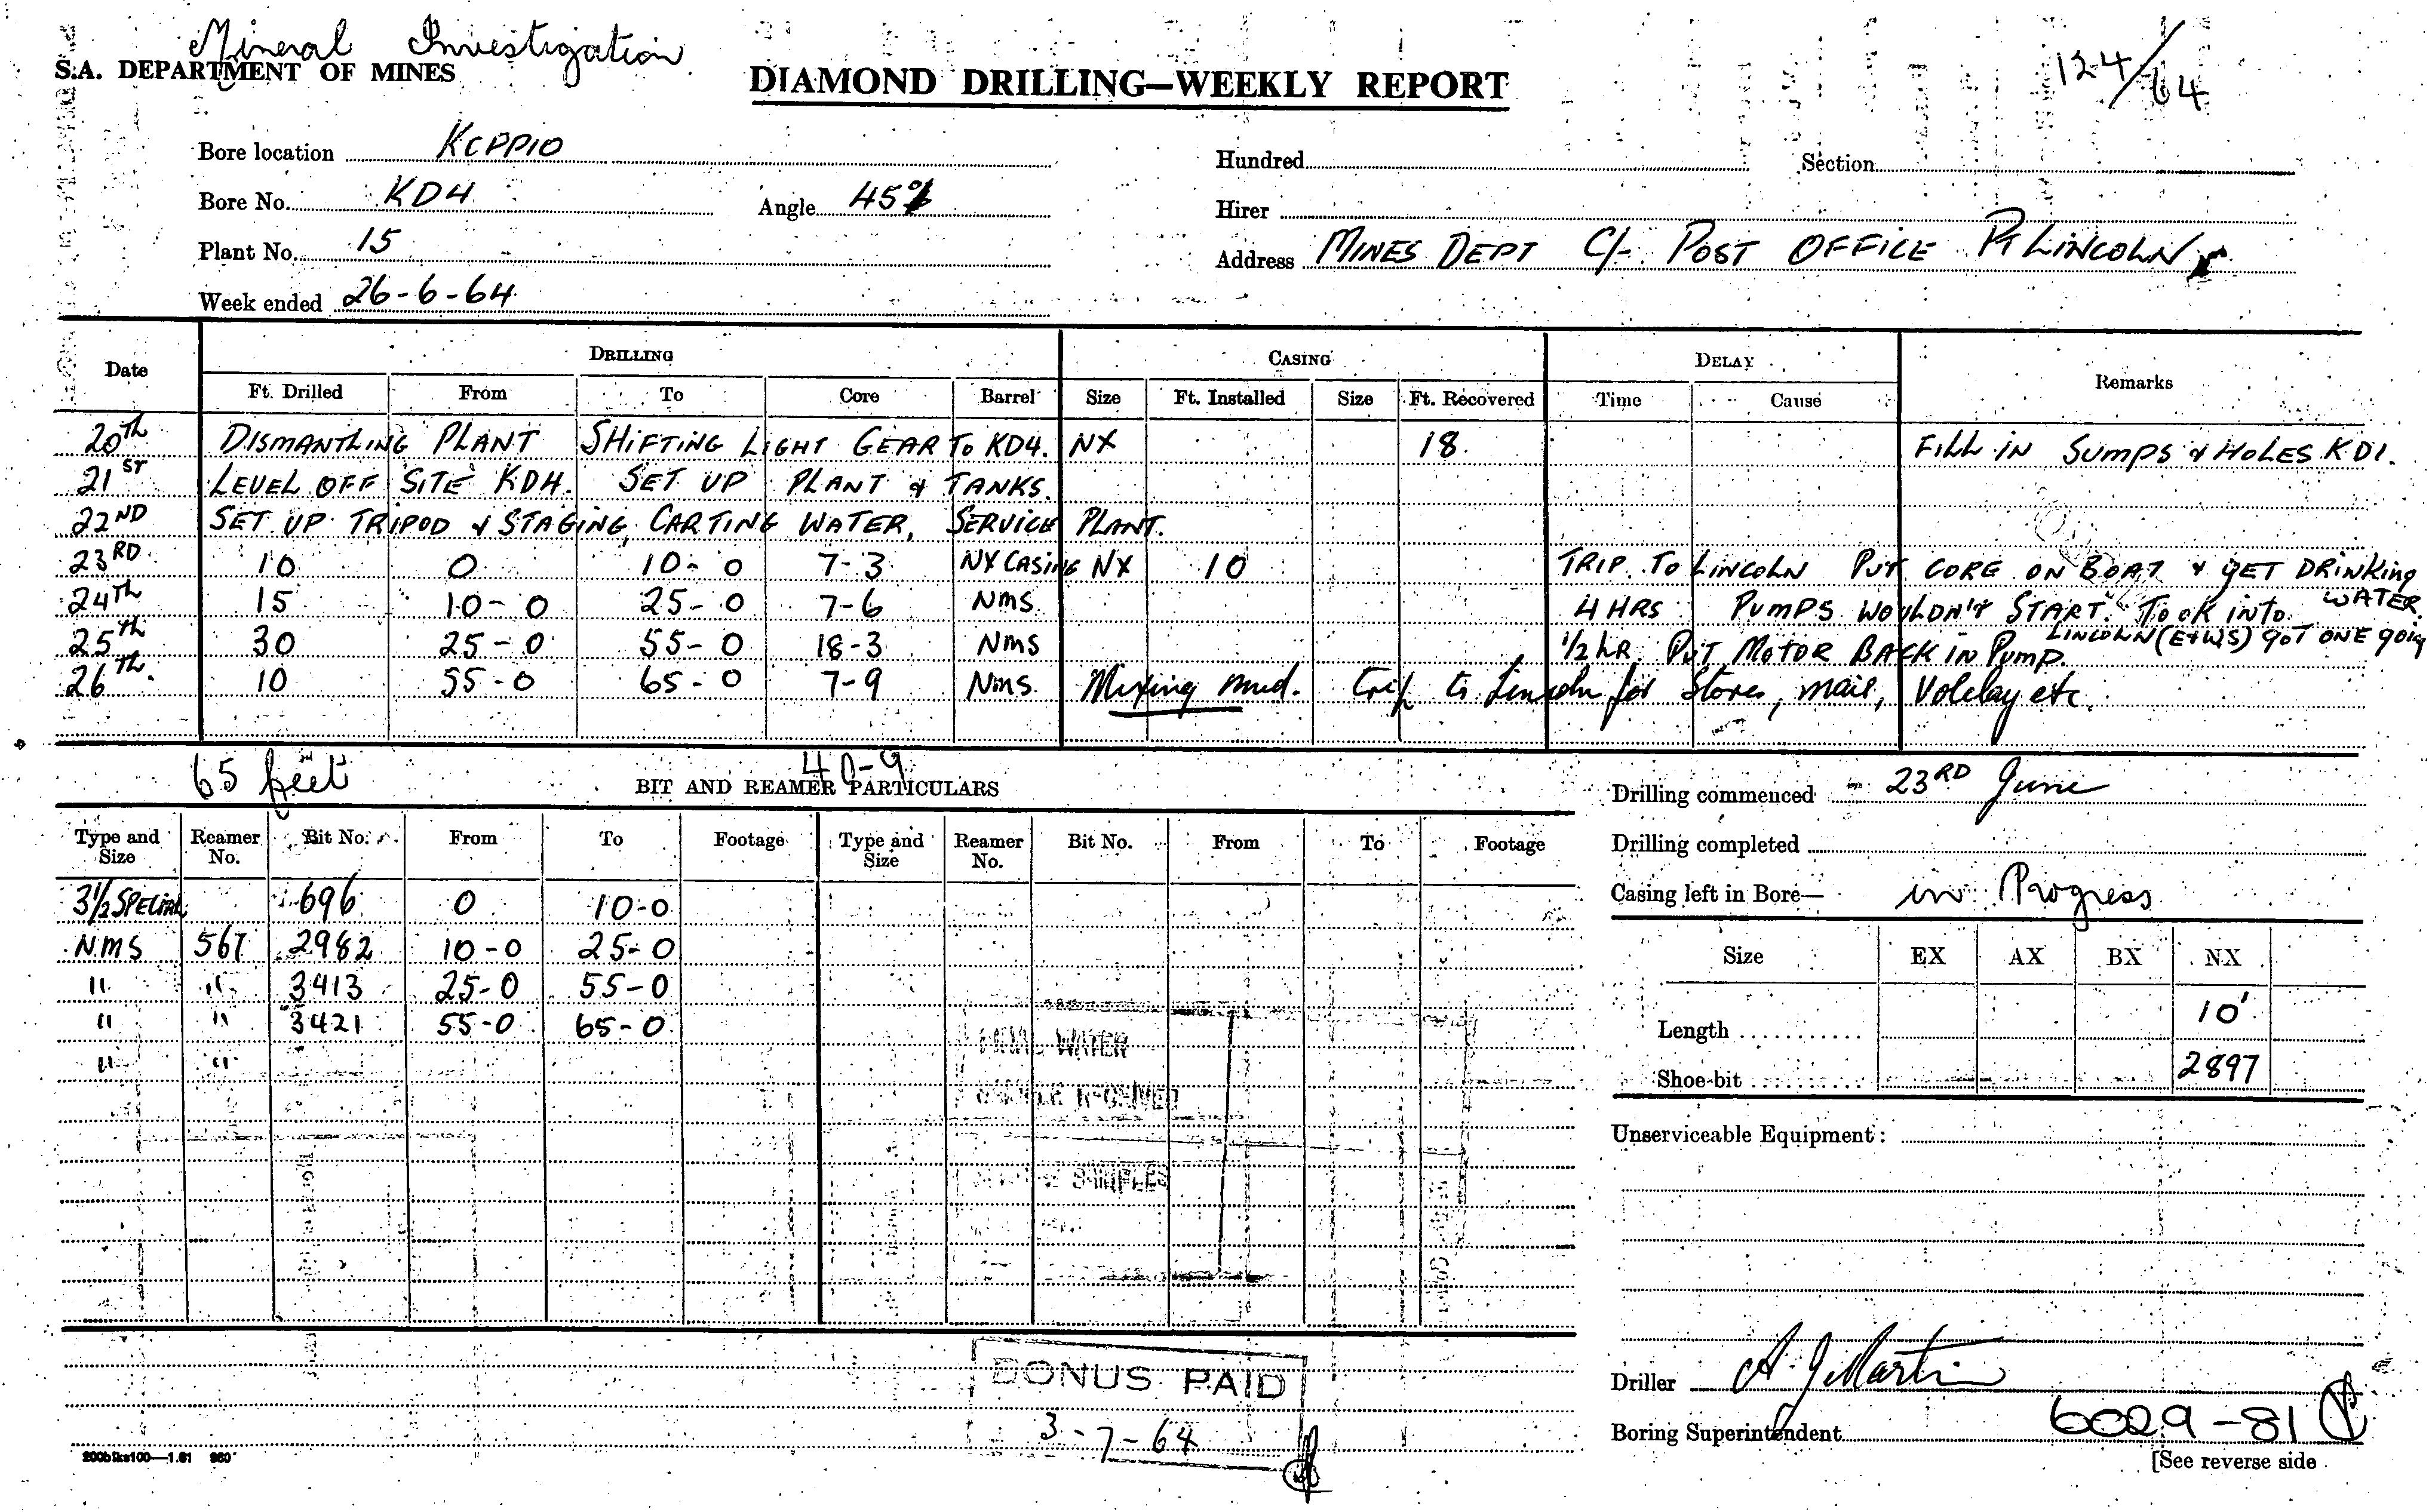 Mineral Investigation
S.A. DEPARTMENT OF MINES
DIAMOND DRILLING—WEEKLY REPORT
124/64
Bore location KOPPIO
Hundred Section
Bore No. KD4 Angle 45°
Hirer
Plant No. 15
Address MINES DEPT C/- POST OFFICE PT LINCOLN
Week ended 26-6-64
Date DRILLING CASING DELAY Remarks
Ft. Drilled From To Core Barrel Size Ft. Installed Size Ft. Recovered Time Cause
20TH DISMANTLING PLANT SHIFTING LIGHT GEAR TO KD4. NX 18 FILL IN SUMPS & HOLES KD1.
21ST LEVEL OFF SITE KD4. SET UP PLANT & TANKS.
22ND SET UP TRIPOD & STAGING, CARTING WATER, SERVICE PLANT.
23RD 10 0 10-0 7-3 NX CASING NX 10 TRIP TO LINCOLN PUT CORE ON BOAT & GET DRINKING WATER
24TH 15 10-0 25-0 7-6 NMS 4 HRS PUMPS WOULDN'T START. TOOK INTO LINCOLN (E&WS) GOT ONE GOING
25th 30 25-0 55-0 18-3 NMS 1/2 HR. PUT MOTOR BACK IN PUMP.
26TH. 10 55-0 65-0 7-9 NMS Mixing mud. trip to Lincoln for stores, mail, Volclay etc.
65 feet 40-9
BIT AND REAMER PARTICULARS
Drilling commenced - 23RD June
Type and Size Reamer No. Bit No. From To Footage Type and Size Reamer No. Bit No. From To Footage
Drilling completed
3½ SPECIAL 696 0 10-0
Casing left in Bore— in Progress
NMS 567 2982 10-0 25-0
Size EX AX BX NX
" " 3413 25-0 55-0
" " 3421 55-0 65-0
Length 10'
" "
Shoe-bit 2897
WATER
SAMPLES
Unserviceable Equipment:
BONUS PAID
3-7-64
Driller A. J Martin
Boring Superintendent 6029-81
200blks100—1.61 960
[See reverse side